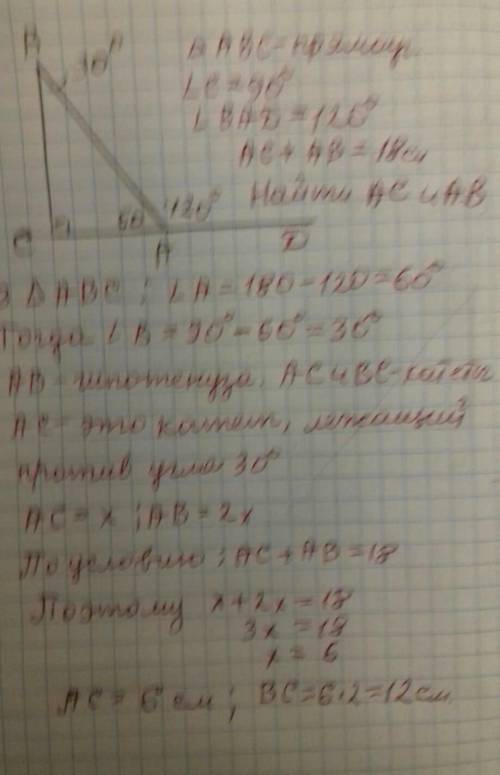 B 30°
Δ ABC - прямоуг.
∠C = 90°
∠BAD = 120°
AC + AB = 18 см
Найти AC и AB
C 60° 120°
A D
В Δ ABC ; ∠A = 180 - 120 = 60°
Тогда ∠B = 90° - 60° = 30°
AB - гипотенуза, AC и BC - катеты
AC - это катет, лежащий
против угла 30°
AC = x ; AB = 2x
По условию ; AC + AB = 18
Поэтому x + 2x = 18
3x = 18
x = 6
AC = 6 см ; BC = 6·2 = 12 см